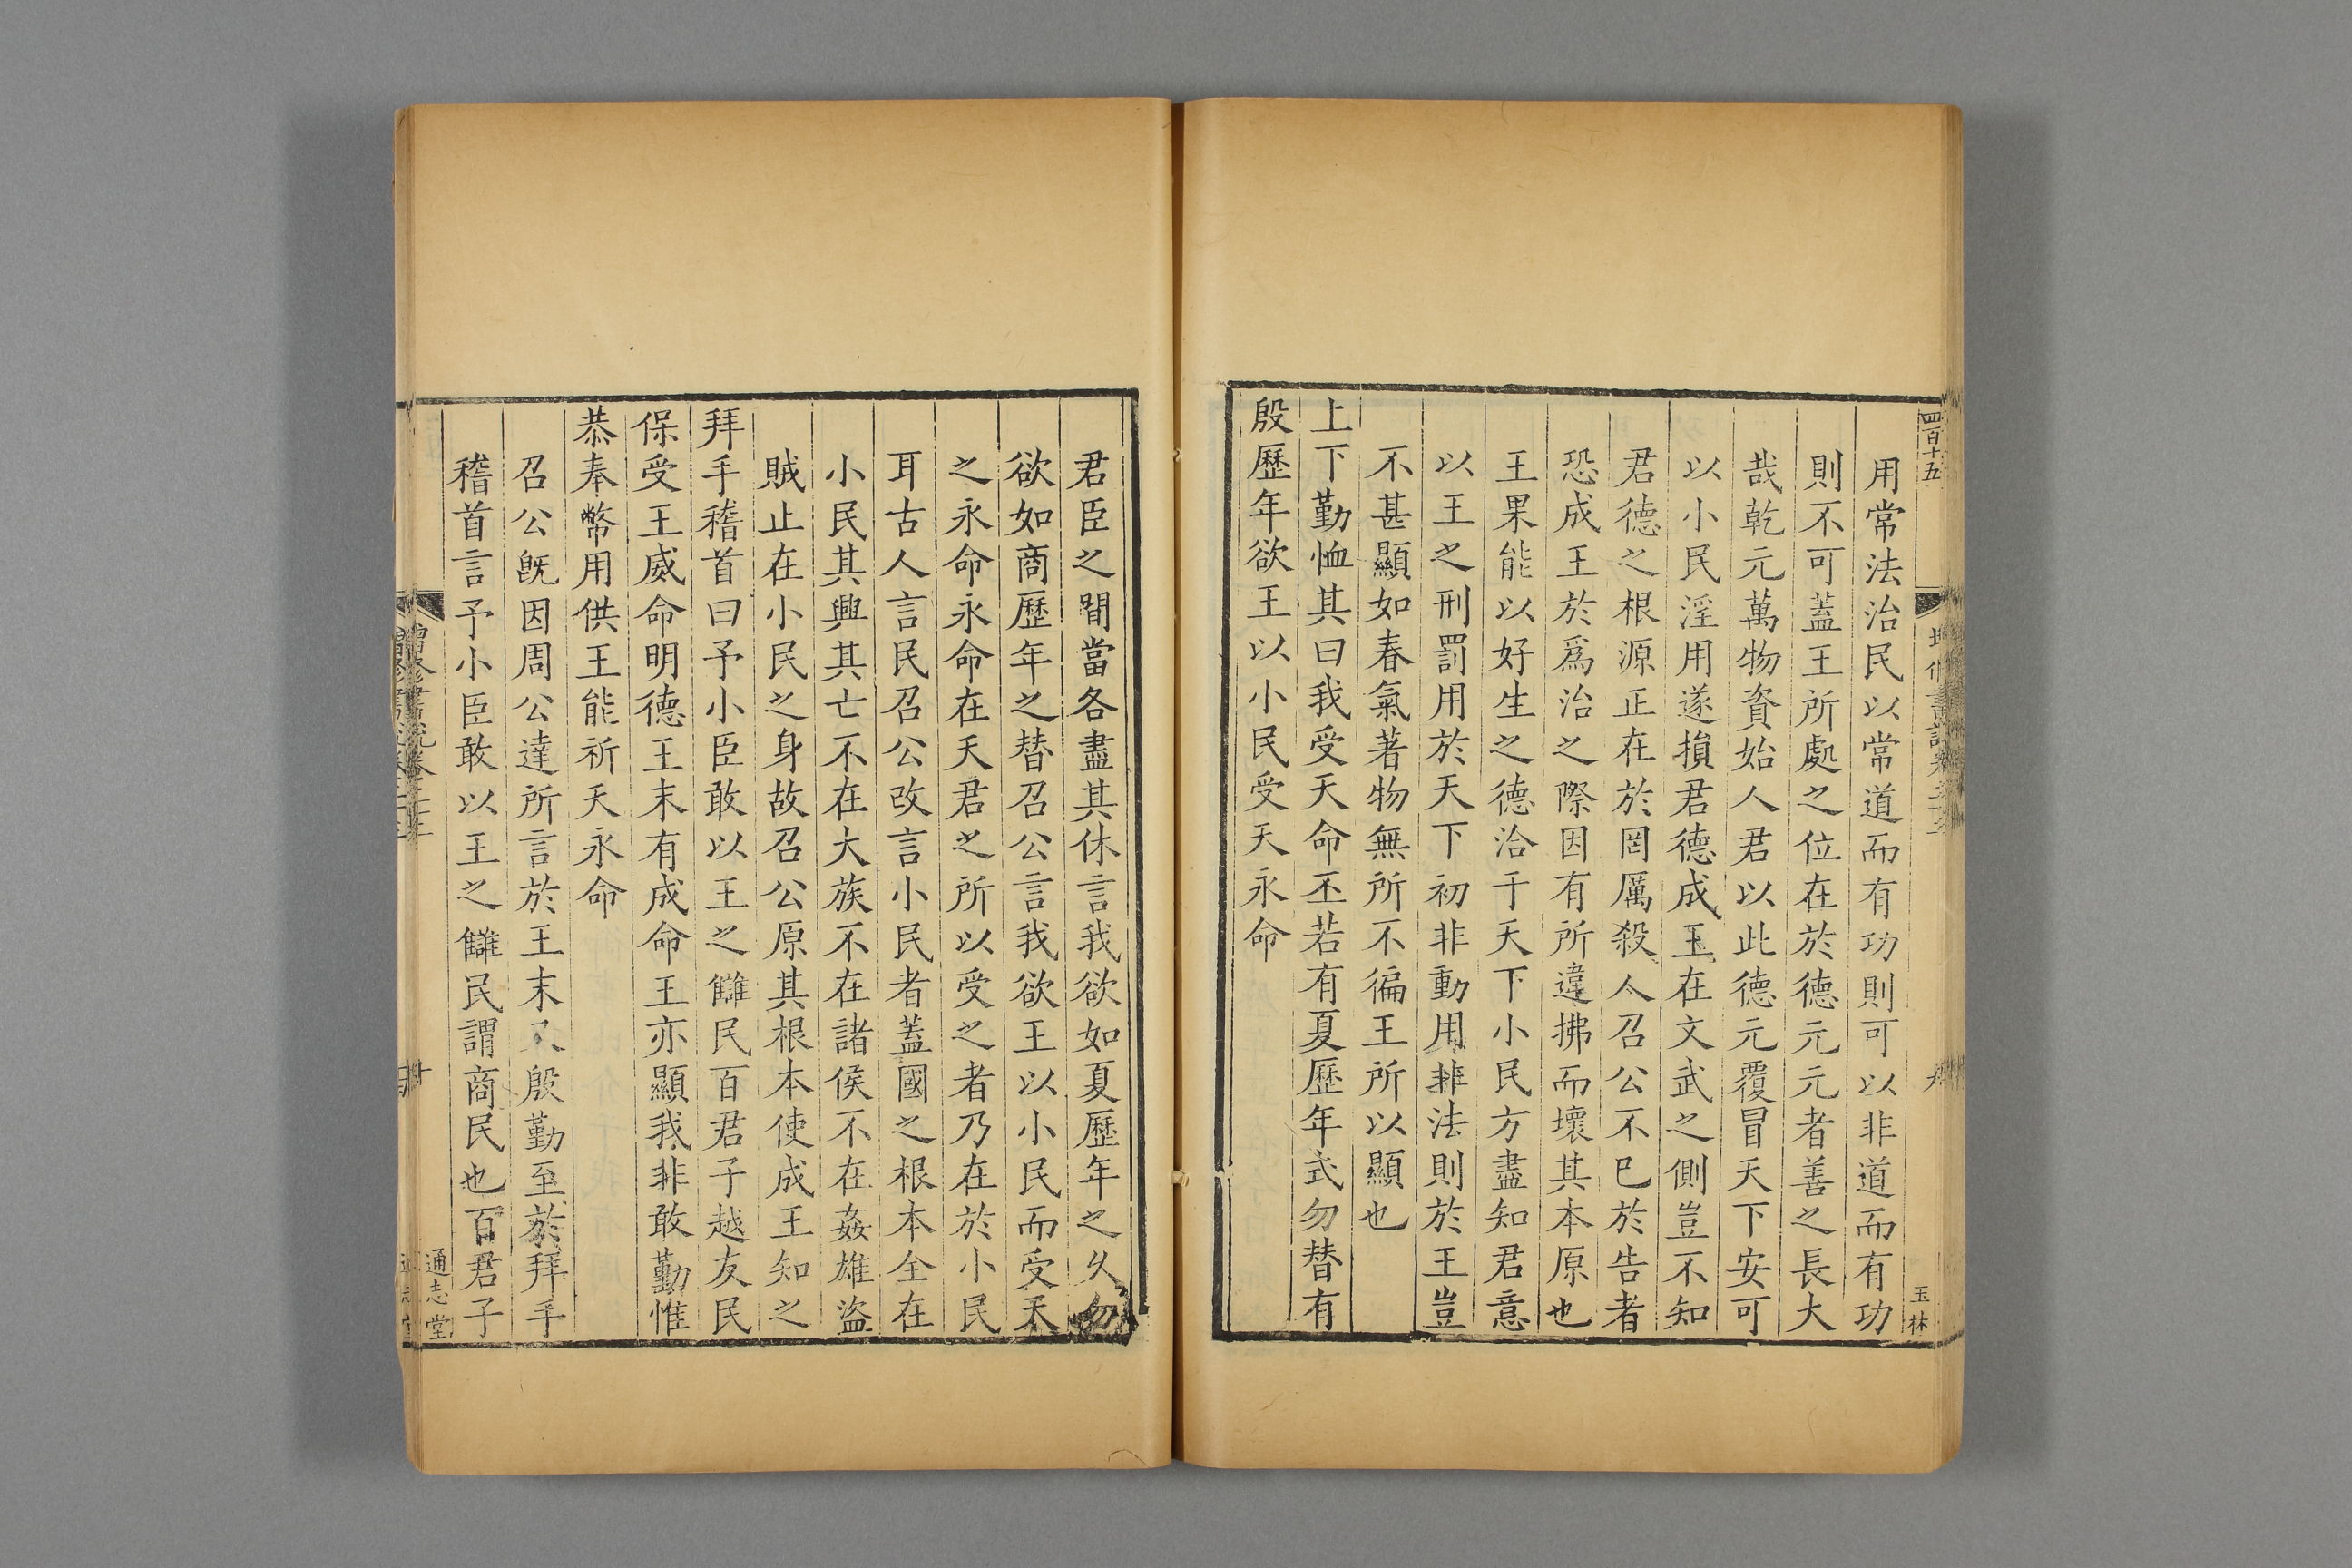 四百十五
玉林
用常法治民以常道而有功則可以非道而有功
則不可蓋王所處之位在於德元元者善之長大
哉乾元萬物資始人君以此德元覆冒天下安可
以小民淫用遂損君德成王在文武之側豈不知
君德之根源正在於罔厲殺人召公不已於告者
恐成王於爲治之際因有所違拂而壞其本原也
王果能以好生之德洽于天下小民方盡知君意
以王之刑罰用於天下初非動用非法則於王豈
不甚顯如春氣著物無所不徧王所以顯也
上下勤恤其曰我受天命丕若有夏歷年式勿替有
殷歷年欲王以小民受天永命
君臣之間當各盡其休言我欲如夏歷年之久勿
欲如商歷年之替召公言我欲王以小民而受天
之永命永命在天君之所以受之者乃在於小民
耳古人言民召公改言小民者蓋國之根本全在
小民其興其亡不在大族不在諸侯不在姦雄盜
賊止在小民之身故召公原其根本使成王知之
拜手稽首曰予小臣敢以王之讎民百君子越友民
保受王威命明德王末有成命王亦顯我非敢勤惟
恭奉幣用供王能祈天永命
召公旣因周公達所言於王末又殷勤至於拜手
稽首言予小臣敢以王之讎民謂商民也百君子
通志堂